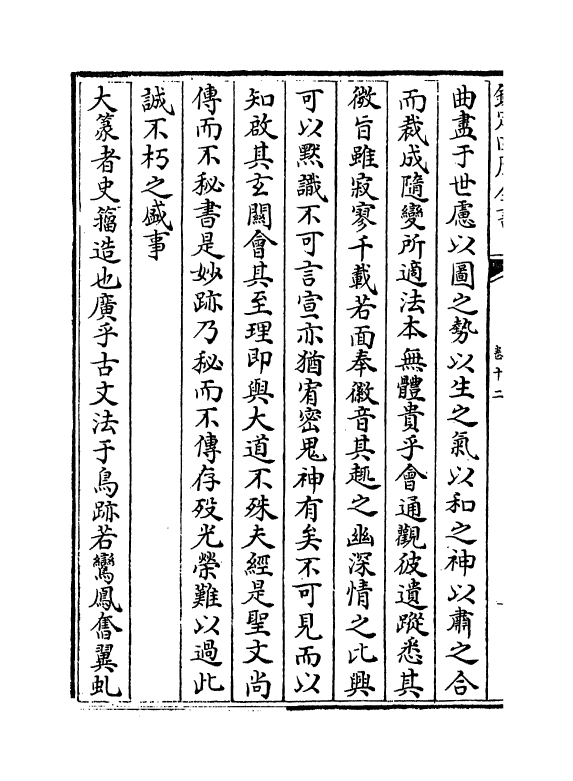 卷十二
曲盡于世慮以圖之勢以生之氣以和之神以肅之合
而裁成隨變所適法本無體貴乎會通觀彼遺蹤悉其
微旨雖寂寥千載若面奉徽音其趣之幽深情之比興
可以黙識不可言宣亦猶宥密鬼神有矣不可見而以
知啟其玄關會其至理即與大道不殊夫經是聖文尚
傳而不秘書是妙跡乃秘而不傳存殁光榮難以過此
誠不朽之盛事
大篆者史籀造也廣乎古文法于鳥跡若鸞鳳奮翼虬